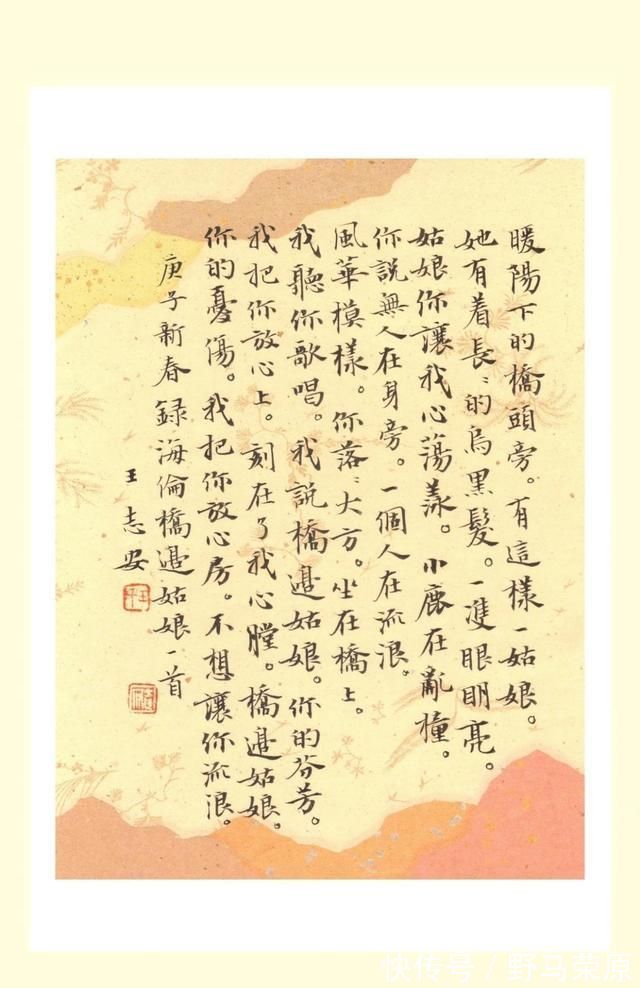 暖陽下的橋頭旁。有這樣一姑娘。
她有着長〻的烏黑髮。一雙眼明亮。
姑娘你讓我心蕩漾。小鹿在亂撞。
你說無人在身旁。一個人在流浪。
風華模樣。你落〻大方。坐在橋上。
我聽你歌唱。我説橋邊姑娘。你的芬芳。
我把你放心上。刻在了我心膛。橋邊姑娘。
你的憂傷。我把你放心房。不想讓你流浪。
庚子新春録海倫橋邊姑娘一首
王志安
快传号 / 野马荣原